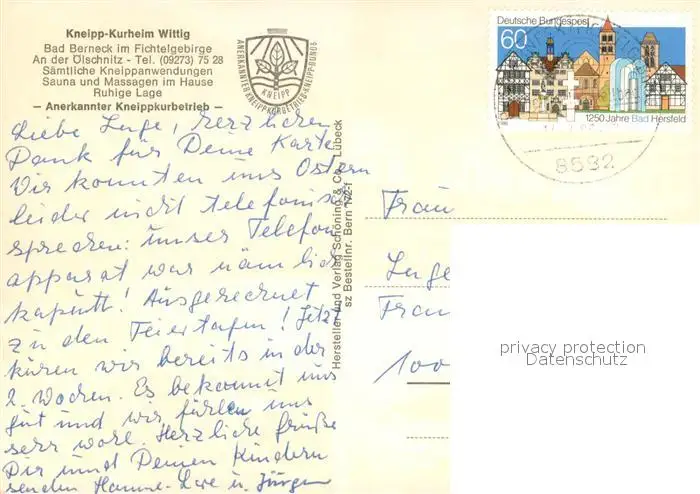 Kneipp-Kurheim Wittig
Bad Berneck im Fichtelgebirge
An der Ölschnitz - Tel. (09273) 75 28
Sämtliche Kneippanwendungen
Sauna und Massagen im Hause
Ruhige Lage
— Anerkannter Kneippkurbetrieb —
ANERKANNTER KNEIPPKURBETRIEB·KNEIPP-BUND E
KNEIPP
Deutsche Bundespost
60
1250 Jahre Bad Hersfeld
8582
Liebe Inge, herzlichen
Dank für Deine Karte
Wir konnten uns Ostern
leider nicht telefonisch
sprechen: unser Telefon
apparat war nämlich
kaputt! Ausgerechnet
zu den Feiertagen! Jetzt
kuren wir bereits in der
2. Wochen. Es bekommt uns
gut und wir fühlen uns
sehr wohl. Herzliche Grüße
Dir und Deinen Kindern
senden Hanne-Lore u. Jürgen
Hersteller und Verlag Schöning & Co., Lübeck
sz Bestellnr. Bern
Frau
Inge
Fran
100
privacy protection
Datenschutz